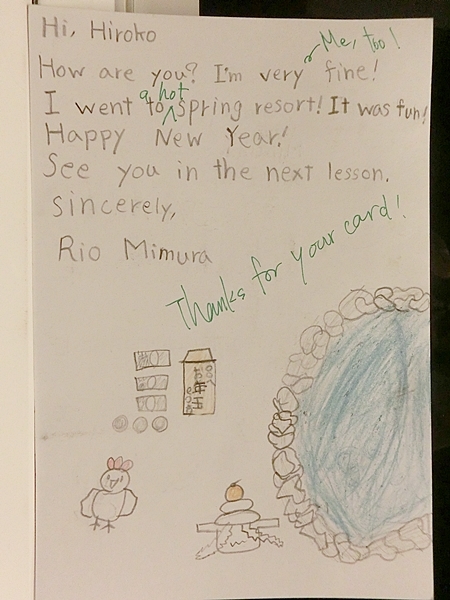 Hi, Hiroko
Me, too!
How are you? I'm very fine!
a hot
I went to spring resort! It was fun!
Happy New Year!
See you in the next lesson.
Sincerely,
Rio Mimura
Thanks for your card!